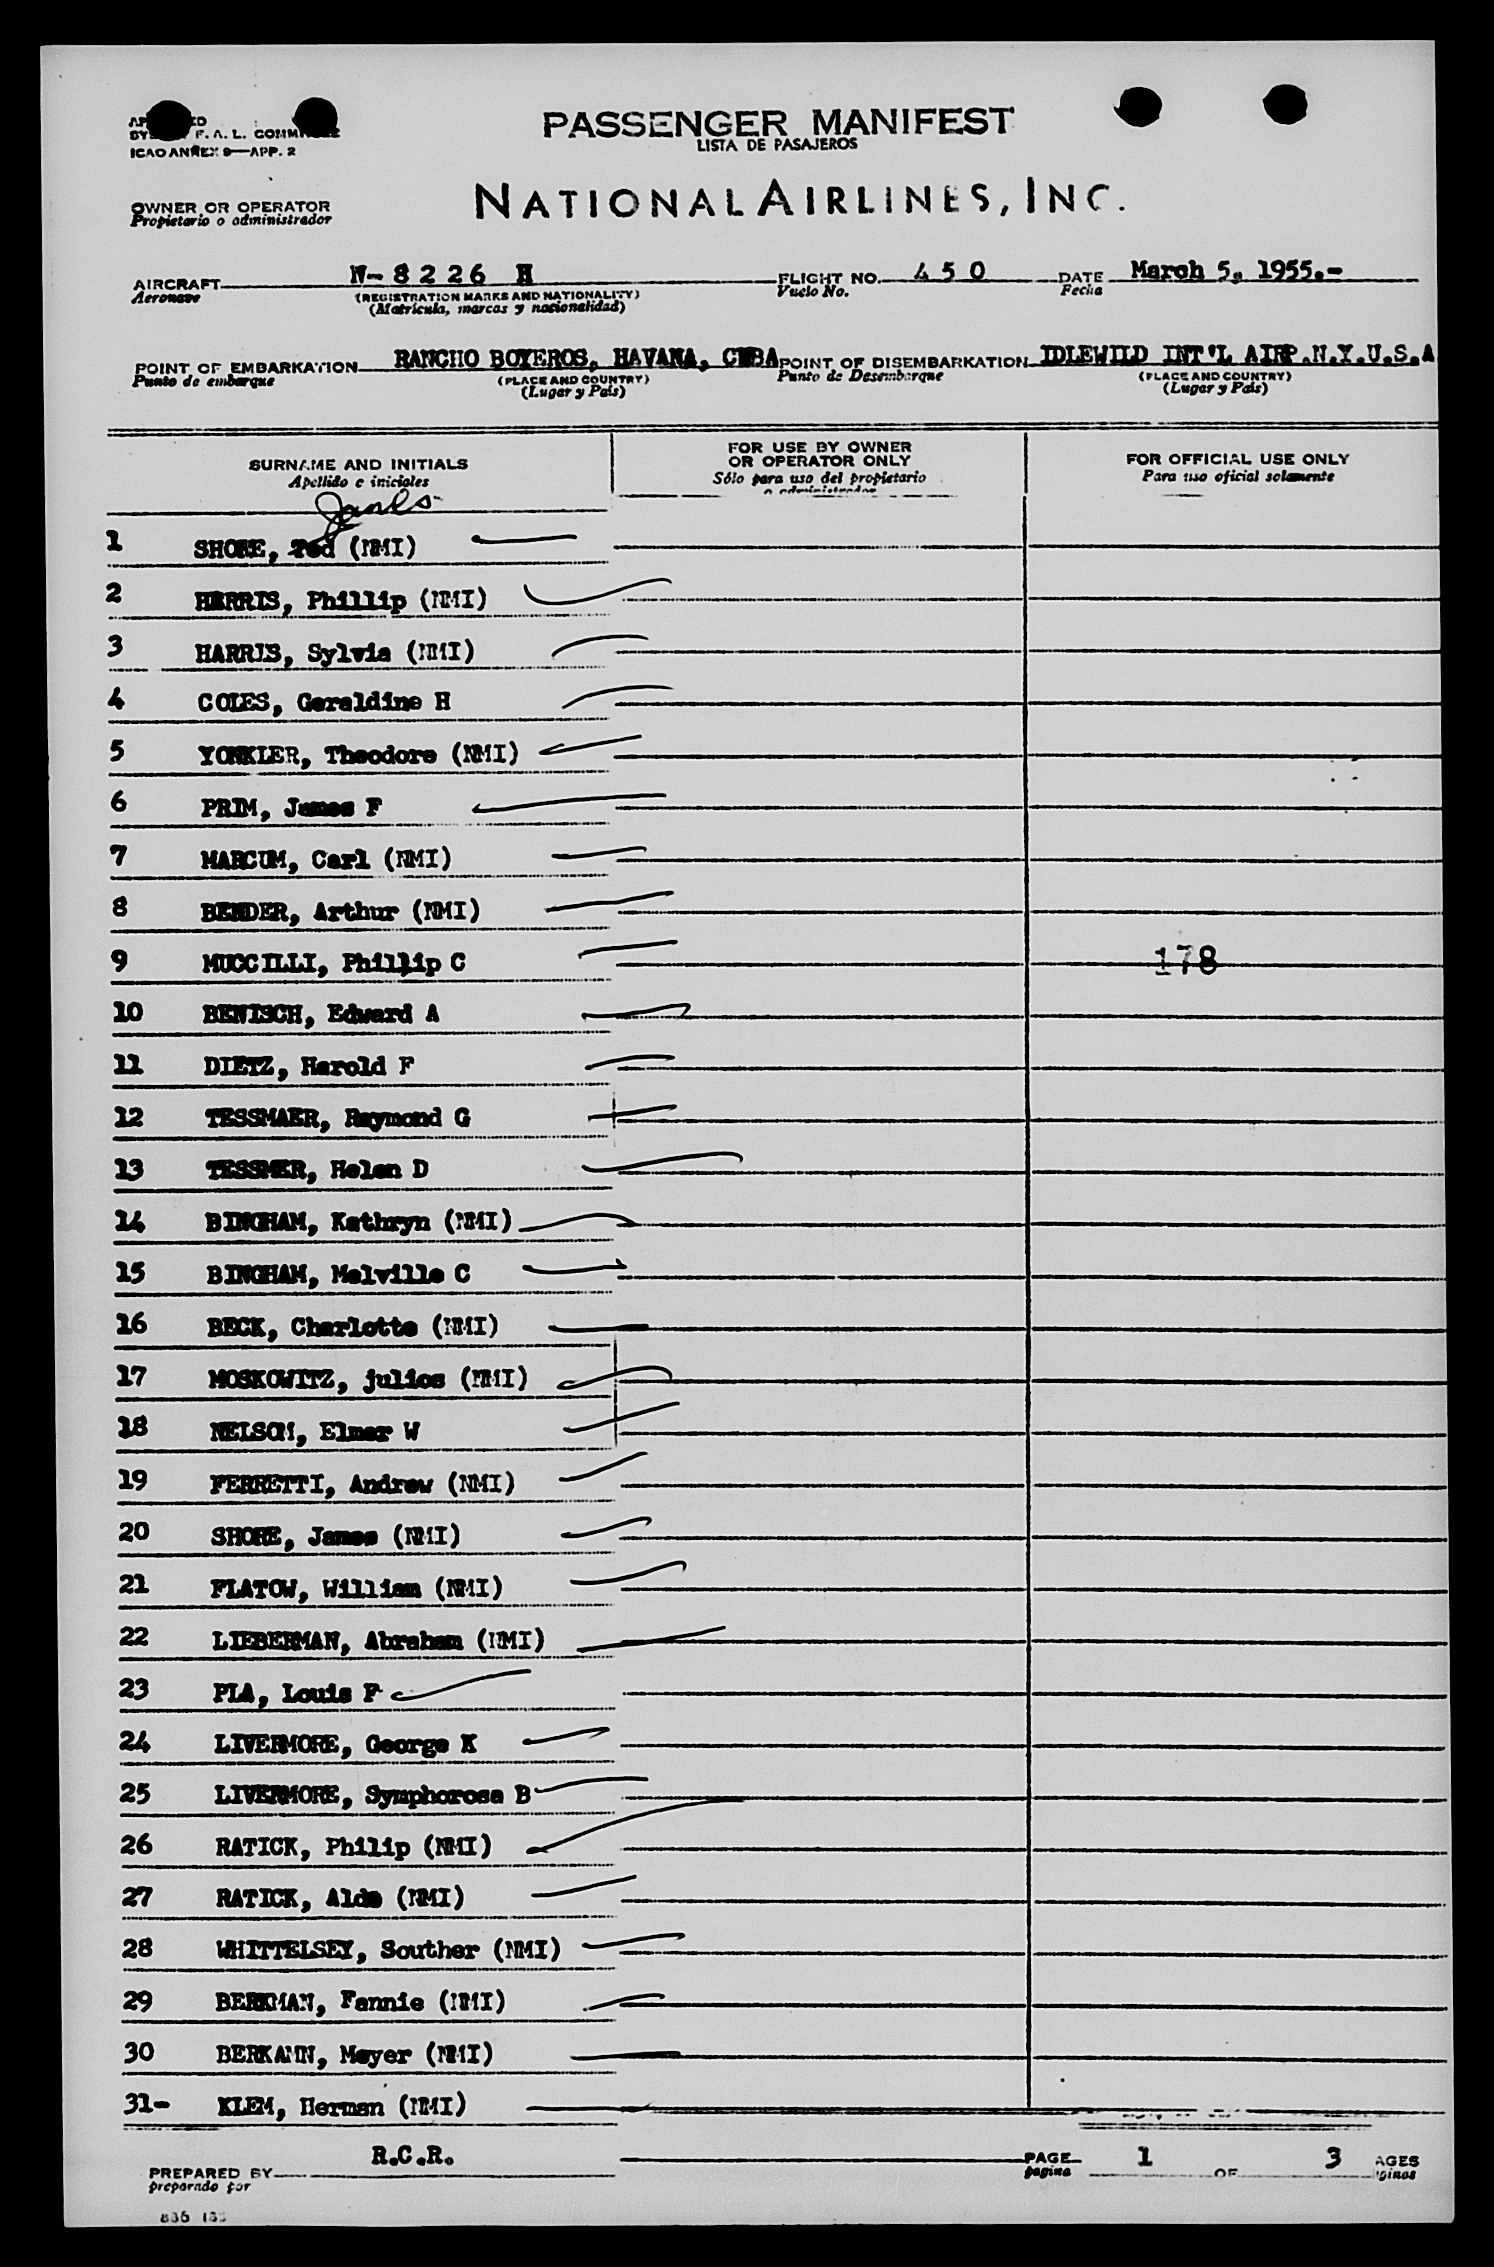 PASSENGER MANIFEST
LISTA DE PASAJEROS
BY F. A. L.
ICAO ANNEX 9—APP. 2
OWNER OR OPERATOR
Propietario o administrador
NATIONAL AIRLINES, INC.
AIRCRAFT N-8226 H FLIGHT NO. 450 DATE March 5, 1955.-
Aeronave (REGISTRATION MARKS AND NATIONALITY) Vuelo No. Fecha
(Matrícula, marcas y nacionalidad)
POINT OF EMBARKATION RANCHO BOYEROS, HAVANA, CUBA POINT OF DISEMBARKATION IDLEWILD INT'L AIRP.N.Y.U.S.A
Punto de embarque (PLACE AND COUNTRY) Punto de Desembarque (PLACE AND COUNTRY)
(Lugar y País) (Lugar y País)
SURNAME AND INITIALS FOR USE BY OWNER OR OPERATOR ONLY FOR OFFICIAL USE ONLY
Apellido e iniciales Sólo para uso del propietario o administrador Para uso oficial solamente
1 SHORE, Ted (NMI)
2 HARRIS, Phillip (NMI)
3 HARRIS, Sylvia (NMI)
4 COLES, Geraldine H
5 YONKLER, Theodore (NMI)
6 PRIM, James F
7 MARCUM, Carl (NMI)
8 BENDER, Arthur (NMI)
9 MUCCILLI, Phillip C 178
10 BENISCH, Edward A
11 DIETZ, Harold F
12 TESSMAER, Raymond G
13 TESSMER, Helen D
14 BINGHAM, Kathryn (NMI)
15 BINGHAM, Melville C
16 BECK, Charlotte (NMI)
17 MOSKOWITZ, julios (NMI)
18 NELSON, Elmer W
19 FERRETTI, Andrew (NMI)
20 SHORE, James (NMI)
21 FLATOW, William (NMI)
22 LIEBERMAN, Abraham (NMI)
23 PLA, Louis F
24 LIVERMORE, George K
25 LIVERMORE, Symphorosa B
26 RATICK, Philip (NMI)
27 RATICK, Alda (NMI)
28 WHITTELSEY, Souther (NMI)
29 BERKMAN, Fannie (NMI)
30 BERKAMN, Meyer (NMI)
31- KLEM, Herman (NMI)
PREPARED BY R.C.R. PAGE 1 OF 3 AGES
preparado por pagina